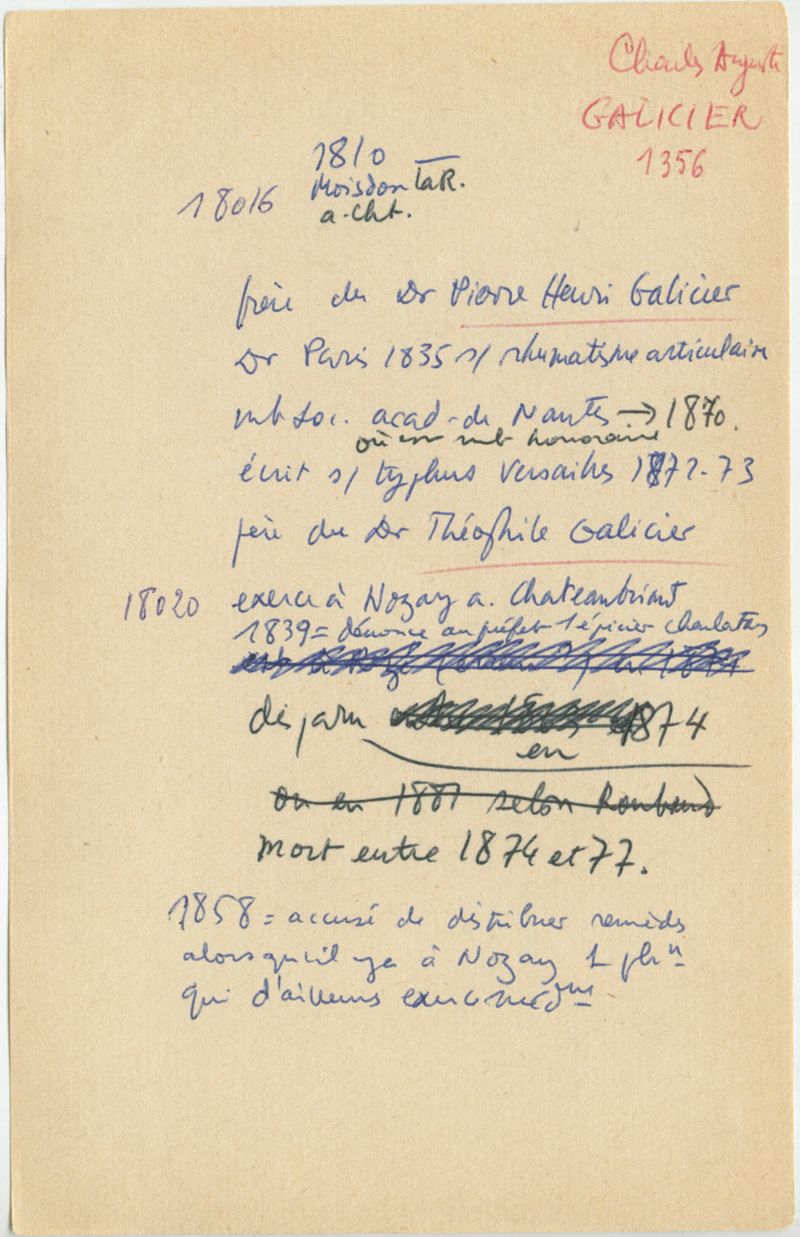 Charles Auguste
GALICIER
1356
1810 —
18016 Moisdon la R.
a. Cht.
frère du Dr Pierre Henri Galicier
Dr Paris 1835 s/ rhumatisme articulaire
mb Soc. acad. de Nantes → 1870.
où est mb honoraire
écrit s/ typhus Versailles 1872-73
père du Dr Théophile Galicier
18020 exerce à Nozay a. Chateaubriant
1839 = dénonce au préfet 1 épicier charlatan
disparu 1874
en
ou en 1881 selon Roubaud
mort entre 1874 et 77.
1858 = accusé de distribuer remèdes
alors qu'il y a à Nozay 1 phn
qui d'ailleurs exerce médne